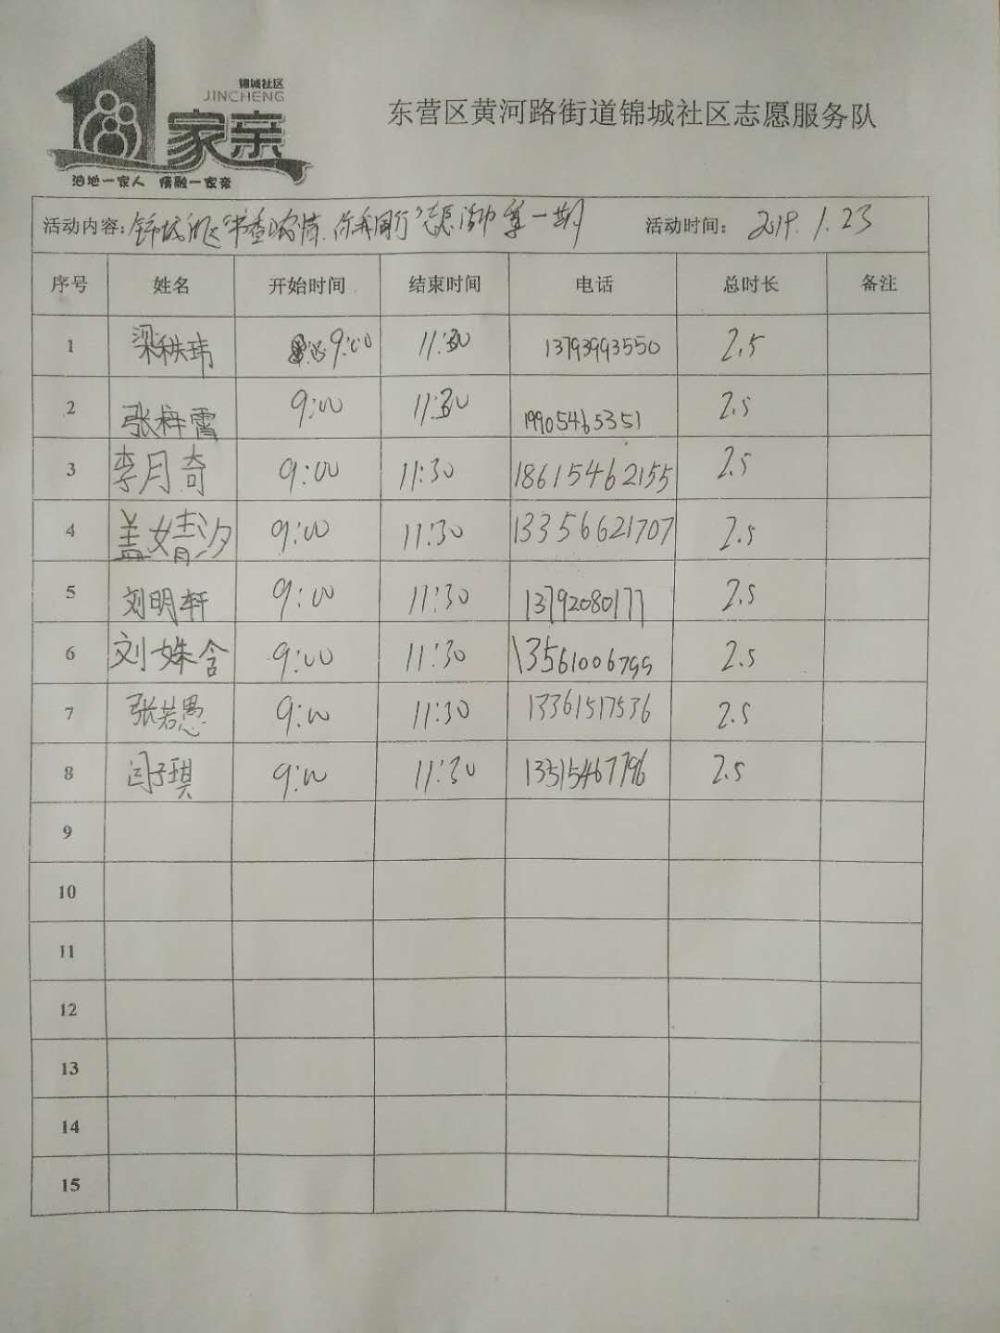 锦城社区
JINCHENG
家亲
泊地一家人 情融一家亲
东营区黄河路街道锦城社区志愿服务队
活动内容: 锦城社区"书香浓情、你我同行"志愿活动第一期 活动时间: 2019.1.23
序号 姓名 开始时间 结束时间 电话 总时长 备注
1 梁秩玮 9:00 11:30 13793993550 2.5
2 张梓霄 9:00 11:30 19905465351 2.5
3 李月奇 9:00 11:30 18615462155 2.5
4 盖婧汐 9:00 11:30 13356621707 2.5
5 刘明轩 9:00 11:30 13792080177 2.5
6 刘姝含 9:00 11:30 13561006799 2.5
7 张若愚 9:00 11:30 13361517536 2.5
8 闫子琪 9:00 11:30 13515467796 2.5
9
10
11
12
13
14
15